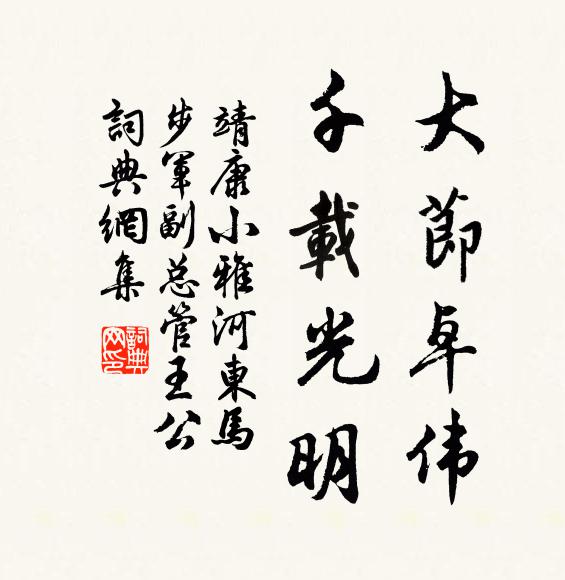 大節卓伟
千載光明
靖康小雅河東馬
步軍副总管王公
詞典網集
詞典网印